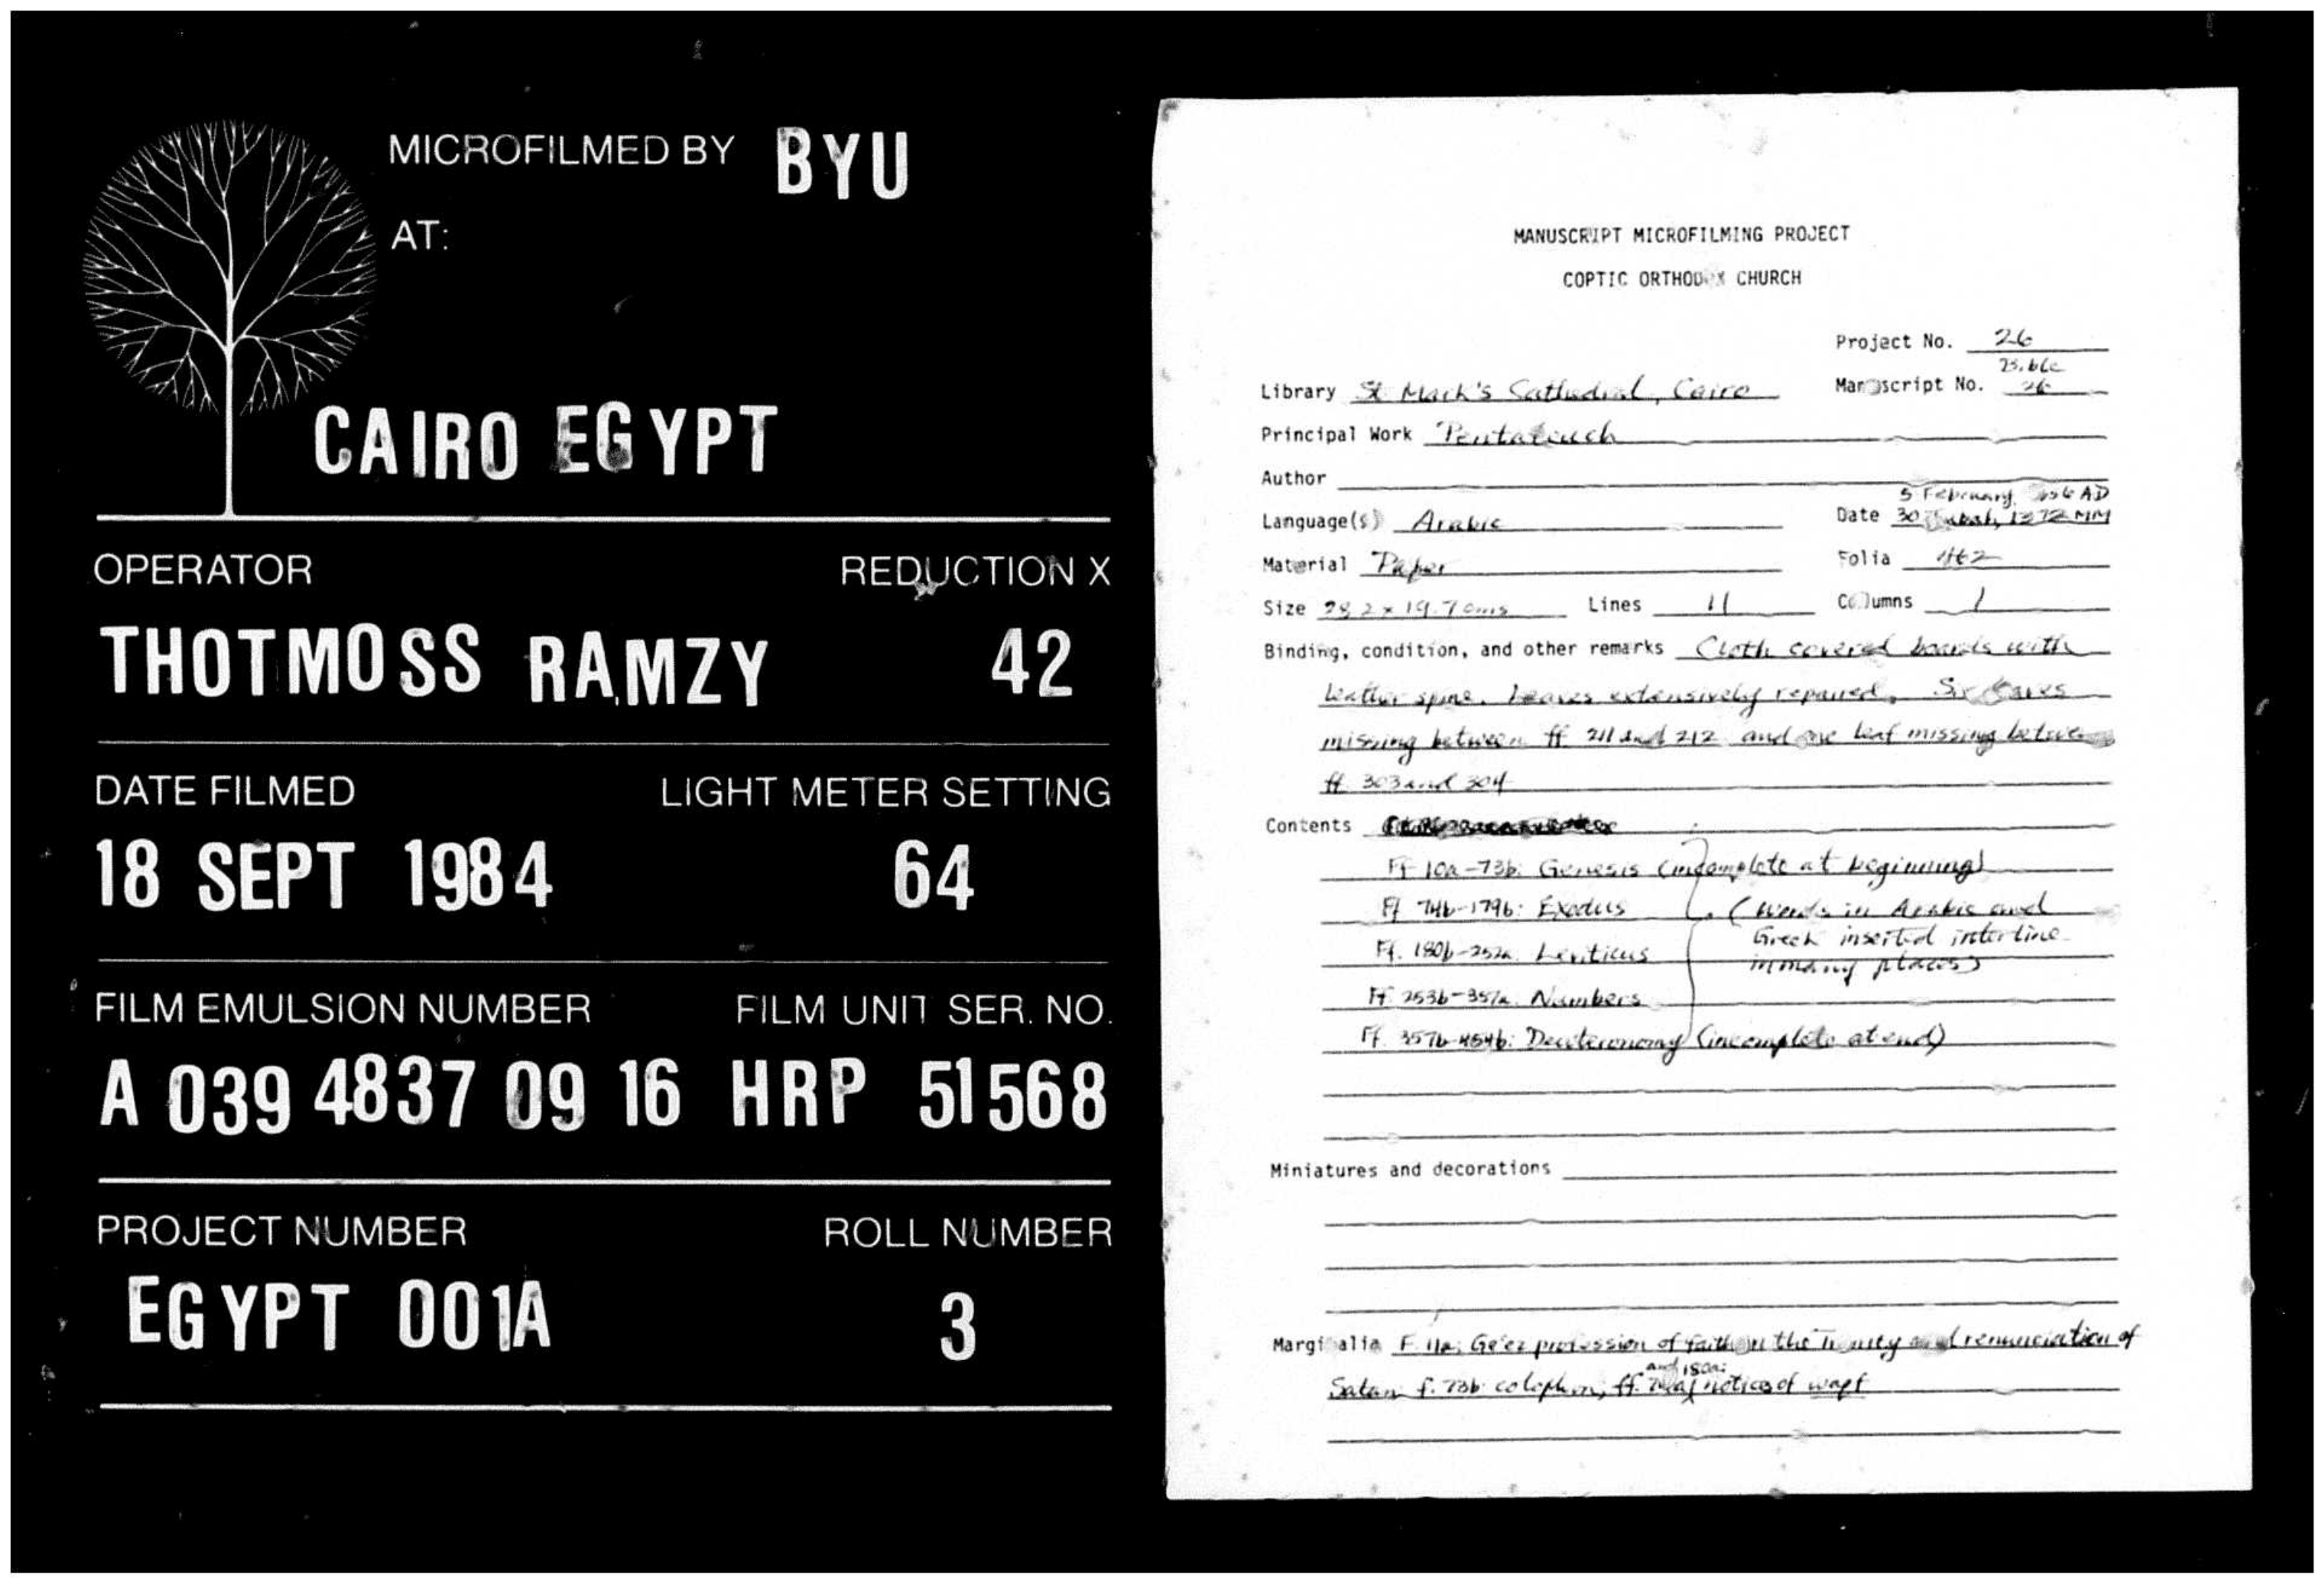 MICROFILMED BY BYU
AT:
CAIRO EGYPT
OPERATOR REDUCTION X
THOTMOSS RAMZY 42
DATE FILMED LIGHT METER SETTING
18 SEPT 1984 64
FILM EMULSION NUMBER FILM UNIT SER. NO.
A 039 4837 09 16 HRP 51568
PROJECT NUMBER ROLL NUMBER
EGYPT 001A 3
MANUSCRIPT MICROFILMING PROJECT
COPTIC ORTHODOX CHURCH
Project No. 26
Bible
Library St. Mark's Cathedral, Cairo Manuscript No. 26
Principal Work Pentateuch
Author
5 February AD
Language(s) Arabic Date 30 1372 MM
Material Paper Folia
Size 28.2 x 19.7 cms Lines 11 Columns 1
Binding, condition, and other remarks Cloth covered boards with
leather spine. Leaves extensively repaired. Six leaves
missing between ff. 211 and 212 and one leaf missing between
ff. 303 and 304
Contents
Ff 10a-73b: Genesis (incomplete at beginning)
Ff 74b-179b: Exodus (words in Arabic and
Greek inserted interline
Ff. 180b-252a. Leviticus in many places)
Ff. 253b-357a. Numbers
Ff. 357b-454b: Deuteronomy (incomplete at end)
Miniatures and decorations
Marginalia F. 11a: Ge'ez profession of faith in the Trinity and renunciation of
and 180a:
Satan f. 73b colophon, ff. notices of waqf